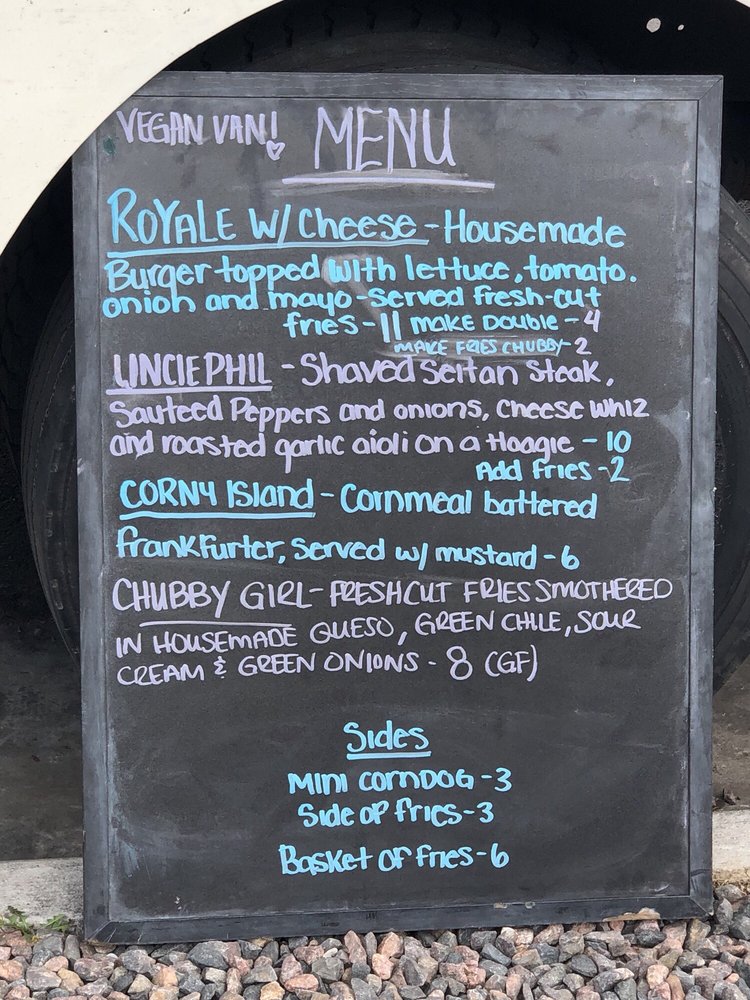 VEGAN VAN! MENU
ROYALE W/ Cheese - Housemade
Burger topped with lettuce, tomato.
onion and mayo - served fresh-cut
fries - 11 make Double - 4
MAKE FRIES CHUBBY - 2
UNCLE PHIL - Shaved Seitan Steak,
Sauteed Peppers and onions, cheese whiz
and roasted garlic aioli on a Hoagie - 10
Add fries - 2
CORNY Island - Cornmeal battered
frankfurter, served w/ mustard - 6
CHUBBY GIRL - FRESHCUT FRIES SMOTHERED
IN HOUSEMADE QUESO, GREEN CHILE, SOUR
CREAM & GREEN ONIONS - 8 (GF)
Sides
MINI CORNDOG - 3
Side of fries - 3
Basket of fries - 6